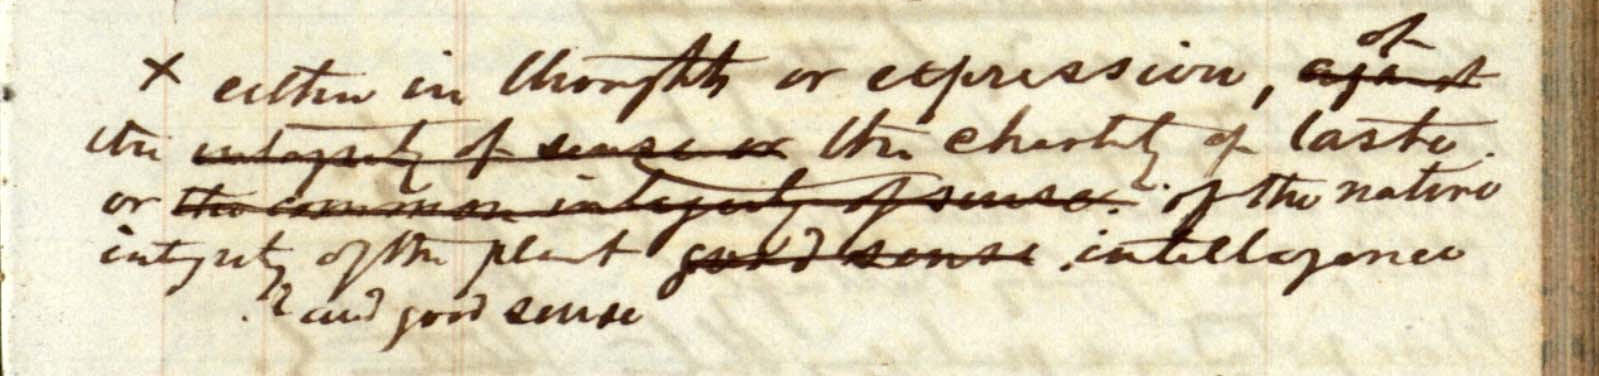 of
x either in thoughts or expression, against
the integrity of sense or the chastity of taste.
or the common integrity of sense. of the native
integrity of the plant good sense. intellagence
and good sense